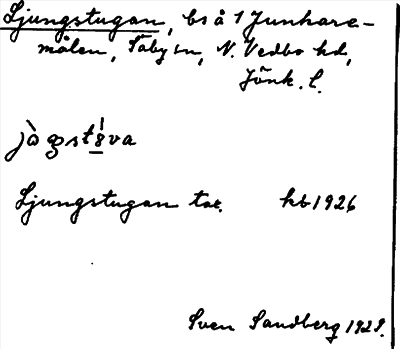 Ljungstugan, bs å 1 Junkara-
målen, Säby sn, N. Vedbo hd,
Jönk. l.
Ljungstugan tor. hb 1926
Sven Sandberg 1929.